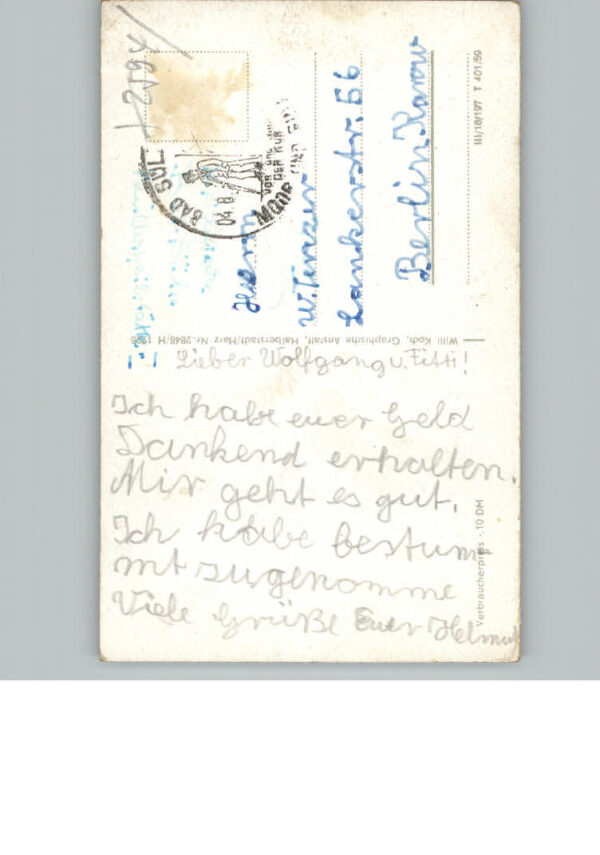 +2594/
BAD SUL
04.8.
VOR UND
DER KUR
MUND
Herrn
W.
Lankerstr. 56
Berlin Karow
III/18/197 T 401/59
Willi Koch, Graphische Anstalt, Halberstadt/Harz Nr. 2848/H
Verbraucherpreis -,10 DM
Lieber Wolfgang u. Fitti!
Ich habe euer Geld
Dankend erhalten.
Mir geht es gut.
Ich habe bestum
mt zugenomme
Viele Grüße Euer Helmut